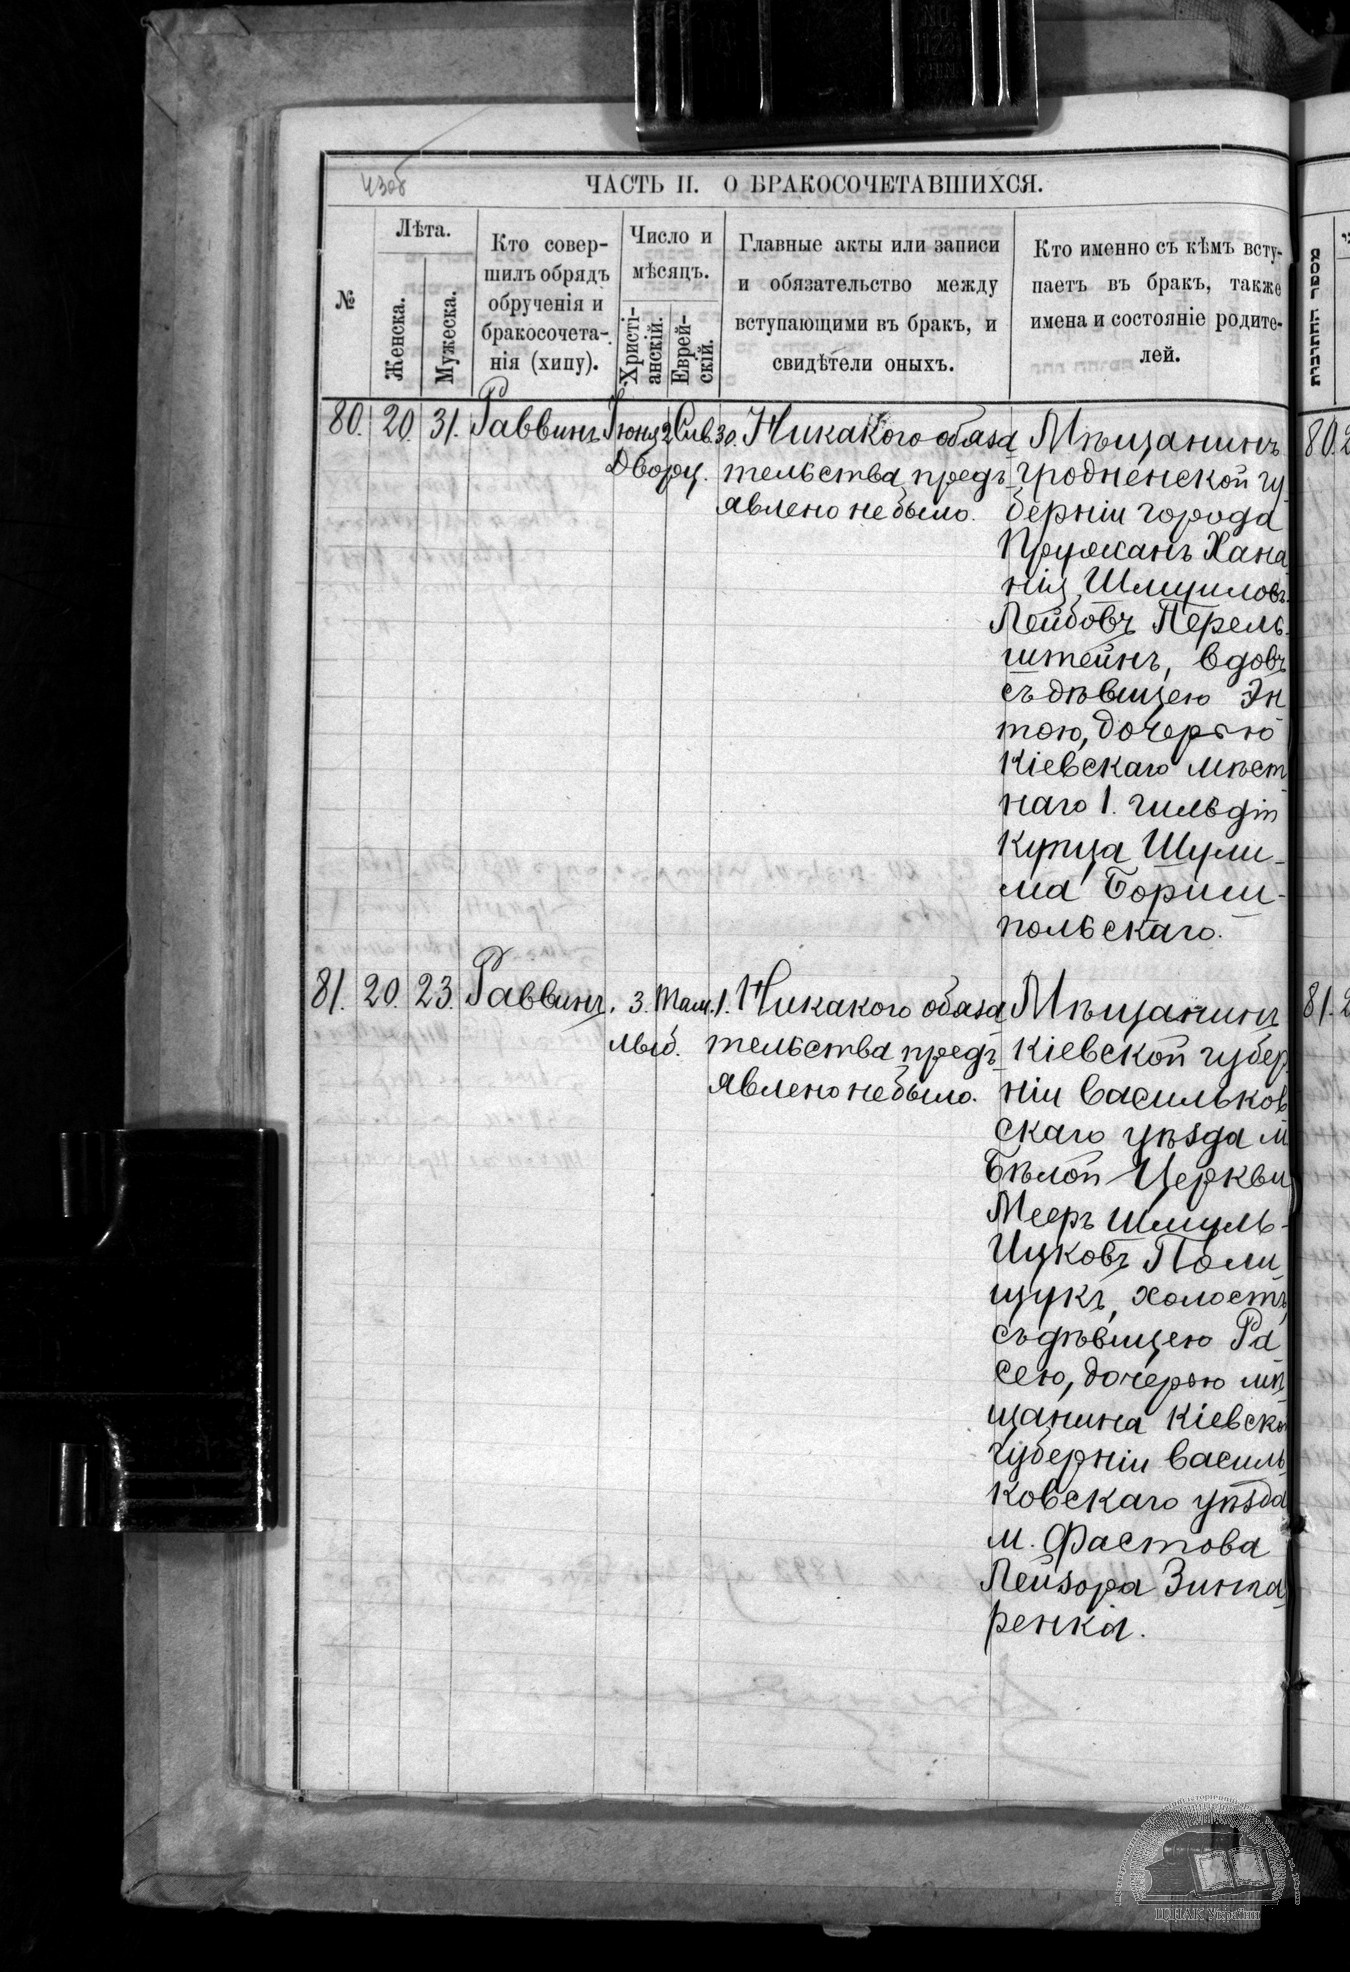 430б
ЧАСТЬ II. О БРАКОСОЧЕТАВШИХСЯ.
№
Лѣта.
Женска.
Мужеска.
Кто совер-
шилъ обрядъ
обрученія и
бракосочета-
нія (хипу).
Число и
мѣсяцъ.
Христі-
анскій.
Еврей-
скій.
Главные акты или записи
и обязательство между
вступающими въ бракъ, и
свидѣтели оныхъ.
Кто именно съ кѣмъ всту-
паетъ въ бракъ, также
имена и состояніе родите-
лей.
80. 20. 31. Раввинъ Іюня 2 Сив. 30.
Дворц.
Никакого обяза
тельства предъ
явлено не было.
Мѣщанинъ
гродненской гу
берніи города
Пружанъ Хана
нія Шмуиловъ
Лейбовъ Перель-
штейнъ, вдовъ
съ дѣвицею Эн
тою, дочерью
Кіевскаго мѣст
наго 1. гильдіи
Купца Шули-
ма Бориш-
польскаго.
81. 20. 23. Раввинъ. 3. Там. 1.
Лыб.
Никакого обяза
тельства предъ
явлено не было.
Мѣщанинъ
Кіевской губер
ніи Васильков
скаго уѣзда м
Бѣлой Церкви
Мееръ Шмуль-
Ицковъ Поли
щукъ, холостъ,
съ дѣвицею Ра
сею, дочерью мѣ
щанина Кіевской
губерніи Василь
ковскаго уѣзда
м. Фастова
Лейзора Зинта
ренка.
מספר החתונות
80. 2
81. 2
ЦДІАК України